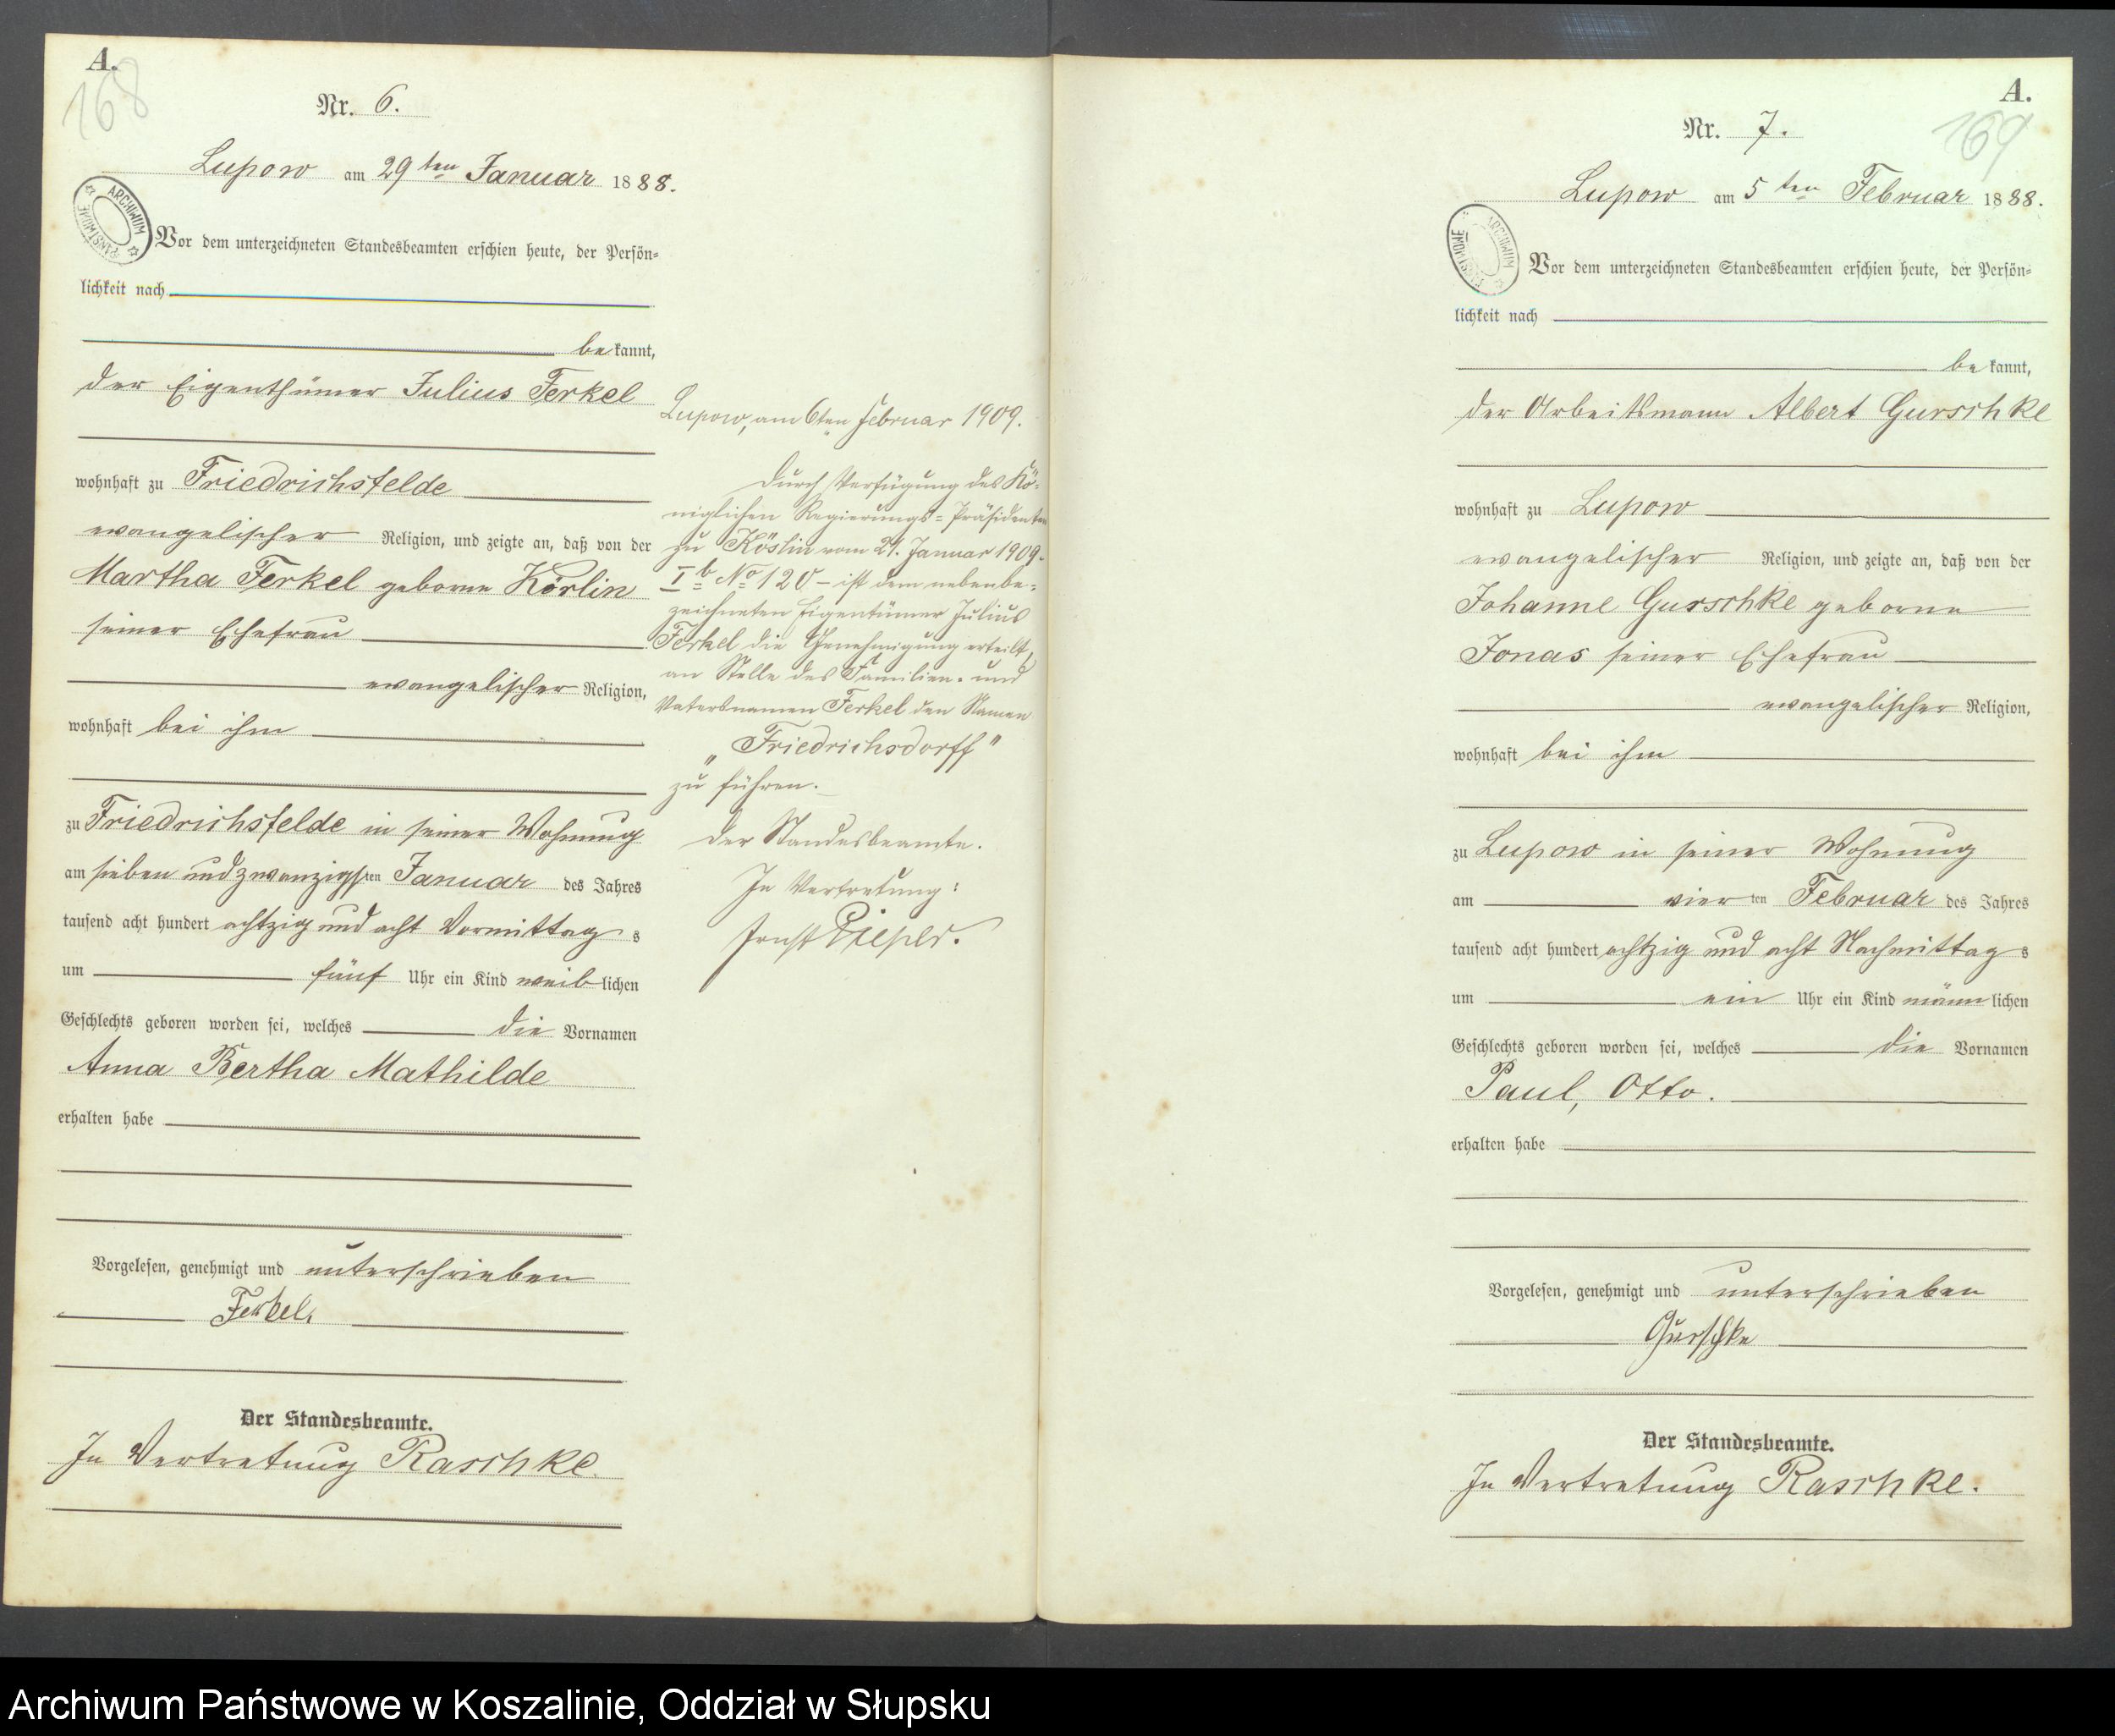 A.
168
Nr. 6.
Lupow am 29ten Januar 1888.
ARCHIWUM PAŃSTWOWE
Vor dem unterzeichneten Standesbeamten erschien heute, der Persön-
lichkeit nach
bekannt,
der Eigenthümer Julius Ferkel
wohnhaft zu Friedrichsfelde
evangelischer Religion, und zeigte an, daß von der
Martha Ferkel geborne Körlin
seiner Ehefrau
evangelischer Religion,
wohnhaft bei ihm
zu Friedrichsfelde in seiner Wohnung
am sieben und zwanzigsten Januar des Jahres
tausend acht hundert achtzig und acht Vormittags
um fünf Uhr ein Kind weiblichen
Geschlechts geboren worden sei, welches die Vornamen
Anna Bertha Mathilde
erhalten habe
Vorgelesen, genehmigt und unterschrieben
Ferkel.
Der Standesbeamte.
In Vertretung Raschke.
Lupow, am 6ten Februar 1909.
Durch Verfügung des Kö-
niglichen Regierungs-Präsidenten
zu Köslin vom 21. Januar 1909-
I b No 120 – ist dem nebenbe-
zeichneten Eigentümer Julius
Ferkel die Genehmigung erteilt,
an Stelle des Familien- und
Vatersnamen Ferkel den Namen
„Friedrichsdorff"
zu führen.
Der Standesbeamte.
In Vertretung:
Ernst Pieper.
A.
169
Nr. 7.
Lupow am 5ten Februar 1888.
ARCHIWUM PAŃSTWOWE
Vor dem unterzeichneten Standesbeamten erschien heute, der Persön-
lichkeit nach
bekannt,
der Arbeitsmann Albert Gurschke
wohnhaft zu Lupow
evangelischer Religion, und zeigte an, daß von der
Johanne Gurschke geborne
Jonas seiner Ehefrau
evangelischer Religion,
wohnhaft bei ihm
zu Lupow in seiner Wohnung
am vierten Februar des Jahres
tausend acht hundert achtzig und acht Nachmittags
um ein Uhr ein Kind männlichen
Geschlechts geboren worden sei, welches die Vornamen
Paul, Otto.
erhalten habe
Vorgelesen, genehmigt und unterschrieben
Gurschke
Der Standesbeamte.
In Vertretung Raschke.
Archiwum Państwowe w Koszalinie, Oddział w Słupsku